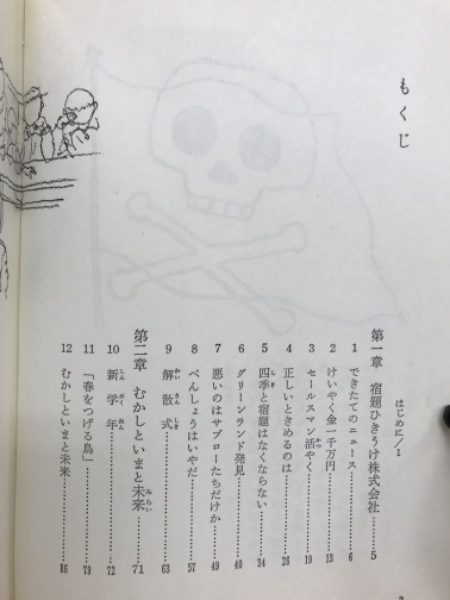 もくじ
はじめに／1
第一章 宿題ひきうけ株式会社……5
1 できたてのニュース……6
2 けいやく金一千万円……13
3 セールスマン活やく……19
4 正しいときめるのは……26
5 四季と宿題はなくならない……34
6 グリーンランド発見……40
7 悪いのはサブローたちだけか……49
8 べんしょうはいやだ……57
9 解散式……63
第二章 むかしといまと未来……71
10 新学年……72
11 「春をつげる鳥」……79
12 むかしといまと未来……86